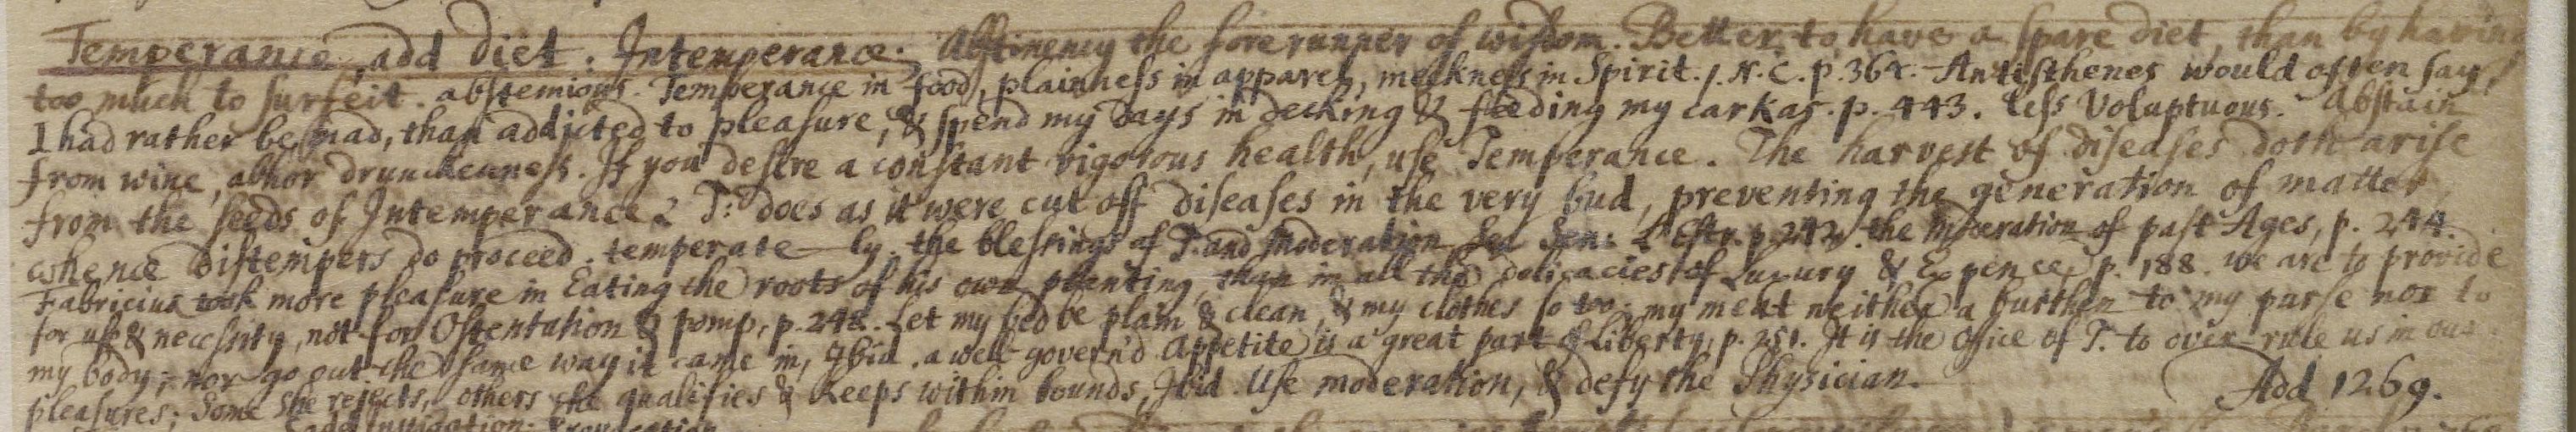 Temperance, add Diet. Intemperance. Abstinency the forerunner of wisdom. Better to have a spare diet, than by having
too much to surfeit. abstemious. Temperance in food, plainness in apparel, meekness in Spirit. N. C. p. 364. Antisthenes would often say,
I had rather be mad, than addicted to pleasure, & spend my Days in Decking & feeding my carkas. p. 443. less Voluptuous. Abstain
from wine, abhor drunkenness. If you desire a constant vigorous health, use Temperance. The harvest of diseases doth arise
from the seeds of Intemperance. T: does as it were cut off Diseases in the very bud, preventing the generation of matter
whence Distempers do proceed. temperate-ly. the blessings of T. and Moderation Sen: L'Estr. p. 242. the Moderation of past Ages, p. 244.
Fabricius took more pleasure in Eating the roots of his own planting, than in all the delicacies of Luxury & Expence, p. 188. we are to provide
for use & necessity, not for Ostentation & pomp, p. 248. Let my bed be plain & clean, & my clothes so too: my meat neither a burthen to my purse nor to
my body; nor go out the same way it came in, Ibid. a well-govern'd Appetite is a great part of Liberty, p. 251. It is the Office of T. to over-rule us in our
pleasures; Some She rejects, others she qualifies & keeps within bounds, Ibid. Use moderation, & defy the Physician. Add 1269.